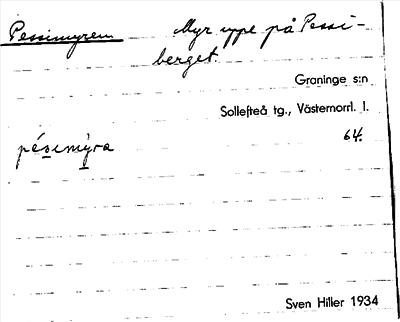 Pessimyren Myr uppe på Pessi-
berget.
Graninge s:n
Sollefteå tg., Västernorrl. l.
pésimýra 64.
Sven Hiller 1934